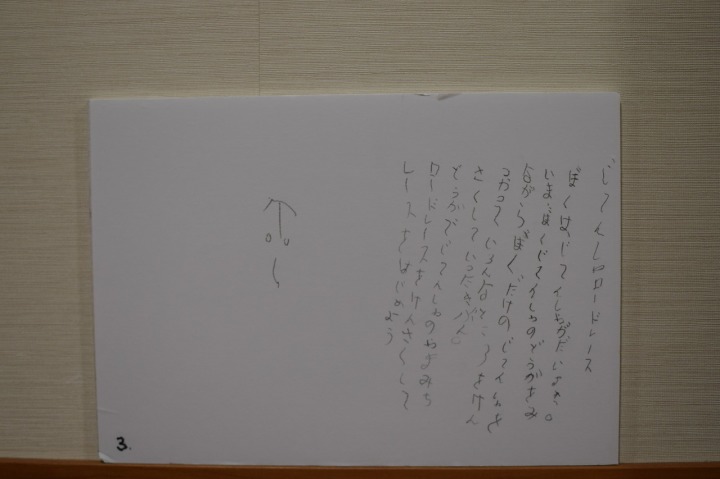 じてんしゃロードレース
ぼくはじてんしゃがだいすき。
いまぼくじてんしゃのどうがをみ
ながらぼくだけのじてんしゃを
つかっていろんなところをけん
さくしていったきぶん。
どうがでじてんしゃのやまみち
ロードレースをけんさくして
レースをはじめよう
3.